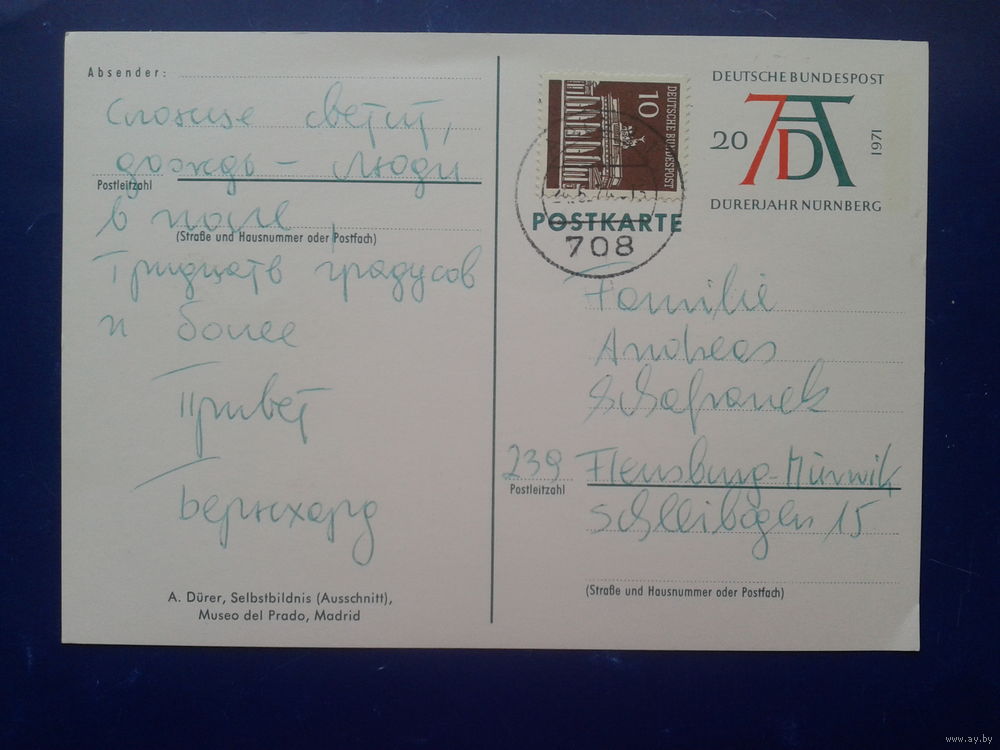 Absender:
слонце светит,
дождь – люди
Postleitzahl
в поле
(Straße und Hausnummer oder Postfach)
Тридцать градусов
и более
Привет
Бернхард
A. Dürer, Selbstbildnis (Ausschnitt),
Museo del Prado, Madrid
10
DEUTSCHE BUNDESPOST
POSTKARTE
708
DEUTSCHE BUNDESPOST
20
1971
DÜRERJAHR NÜRNBERG
Familie
Andreas
Schafranek
239 Flensburg-Mürwik
Postleitzahl
Schleibogen 15
(Straße und Hausnummer oder Postfach)
www.ay.by